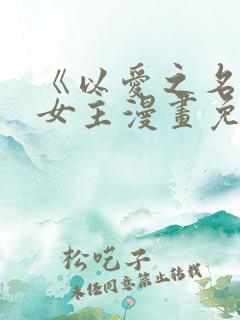 《以愛之名
女王漫畫免
松吃子
未经同意禁止转载